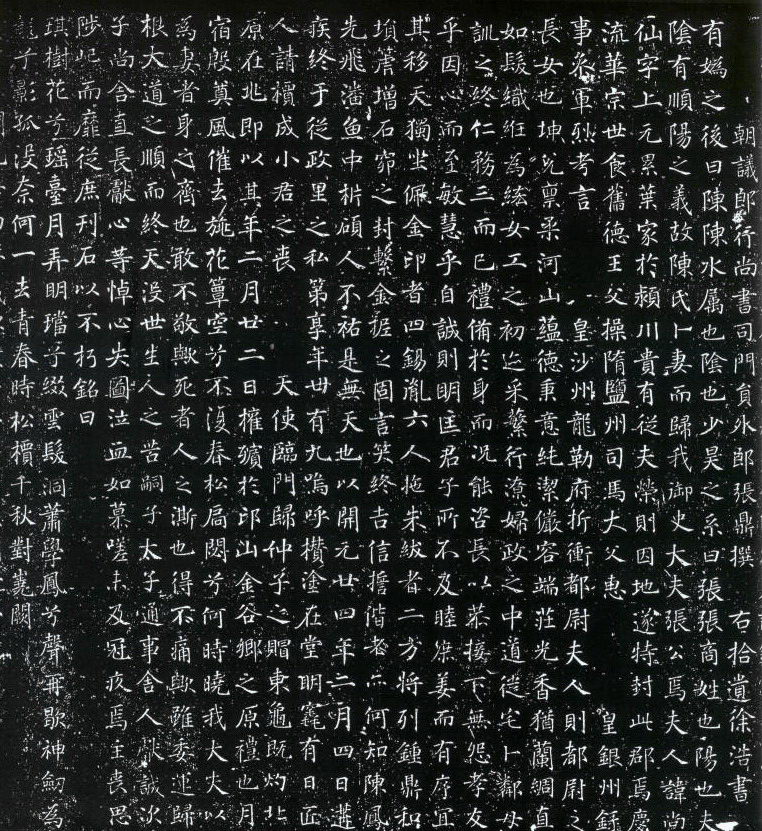 朝議郎行尚書司門員外郎張鼎撰 右拾遺徐浩書
有媯之後曰陳陳水屬也陰也少昊之系曰張張商姓也陽也夫
陰有順陽之義故陳氏卜妻而歸我御史大夫張公焉夫人諱尚
仙字上元累葉家於潁川貴有從夫榮則因地遂特封此郡焉慶
流華宗世食舊德王父操隋鹽州司馬大父惠 皇銀州錄
事叅軍烈考言 皇沙州龍勒府折衝都尉夫人則都尉之
長女也坤允稟柔河山蘊德秉意純潔儼容端莊光香猶蘭綢直
如髮織紝為紘女工之初迄采蘩行潦婦政之中道從宅卜鄰母
訓之終仁務三而已禮備於身而況能咨長以恭接下無怨孝友
乎因心而至敏慧乎自誠則明匡君子所不及睦娣姜而有序宜
其移天獨坐佩金印者四錫胤六人拖朱紱者二方將列鍾鼎和
塤箎增石窌之封繫金柅之固言笑終吉信擔偕老亦何知陳鳳
先飛潘魚中析碩人不祐是無天也以開元廿四年二月四日遘
疾終于從政里之私第享年卅有九嗚呼欑塗在堂明竁有日臣
人請櫝成小君之喪 天使臨門歸仲子之賵東龜既灼北
原在兆即以其年二月廿二日擁殯於邙山金谷鄉之原禮也月
宿殷奠風催去旐花簟空兮不復春松扃閟兮何時曉我大夫以
為妻者身之齊也敢不敬歟死者人之澌也得不痛歟雖委運歸
根大道之順而終天沒世生人之苦嗣子太子通事舍人獻誠次
子尚舍直長獻心等悼心失圖泣血如慕嗟未及冠疚焉主喪思
陟屺而靡從庶刊石以不朽銘曰
琪樹花兮瑤臺月弄明璫兮綴雲髮洞蕭學鳳兮聲再歇神劒為
龍兮影孤沒奈何一去青春時松櫝千秋對嵩闕